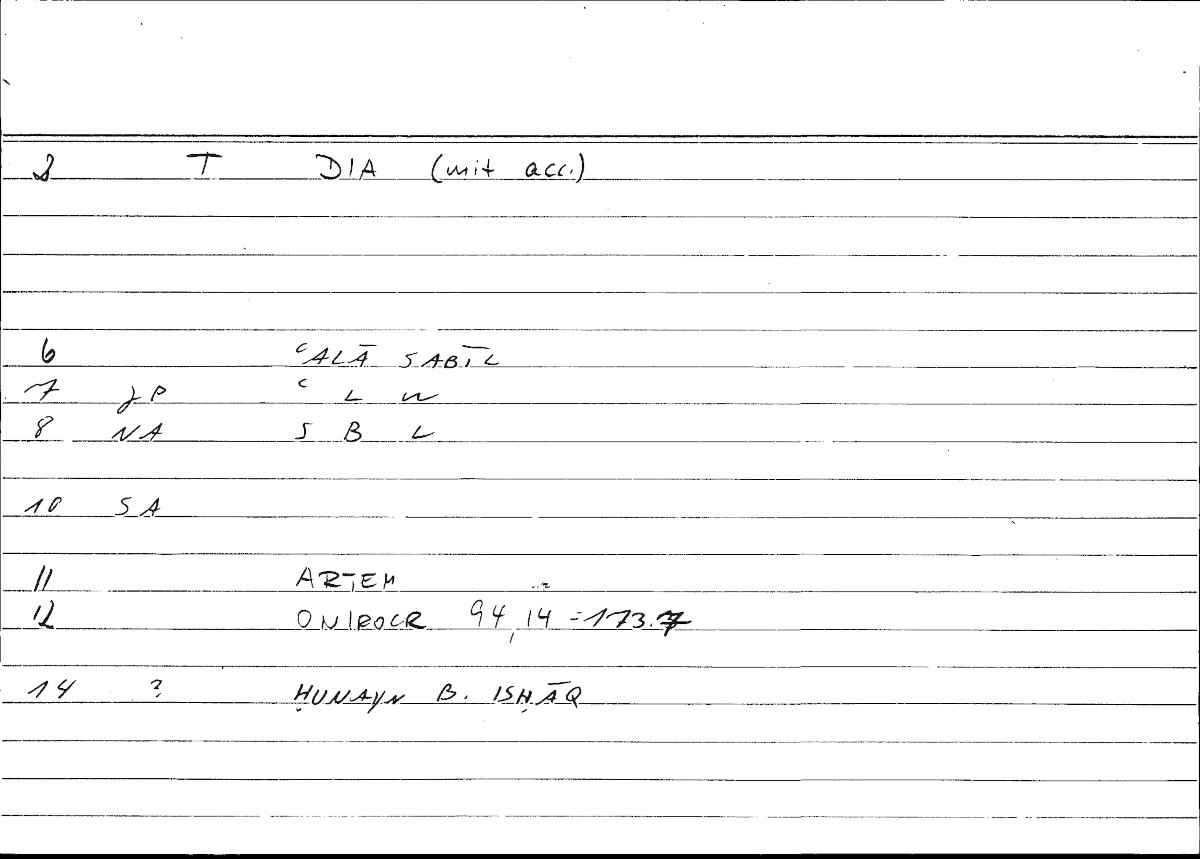 2 T DIA (mit acc.)
6 ʿALĀ SABĪL
7 JP ʿ L W
8 NA S B L
10 SA
11 ARTEM
12 ONIROCR 94,14 = 173.7
14 ? ḤUNAYN B. ISḤĀQ